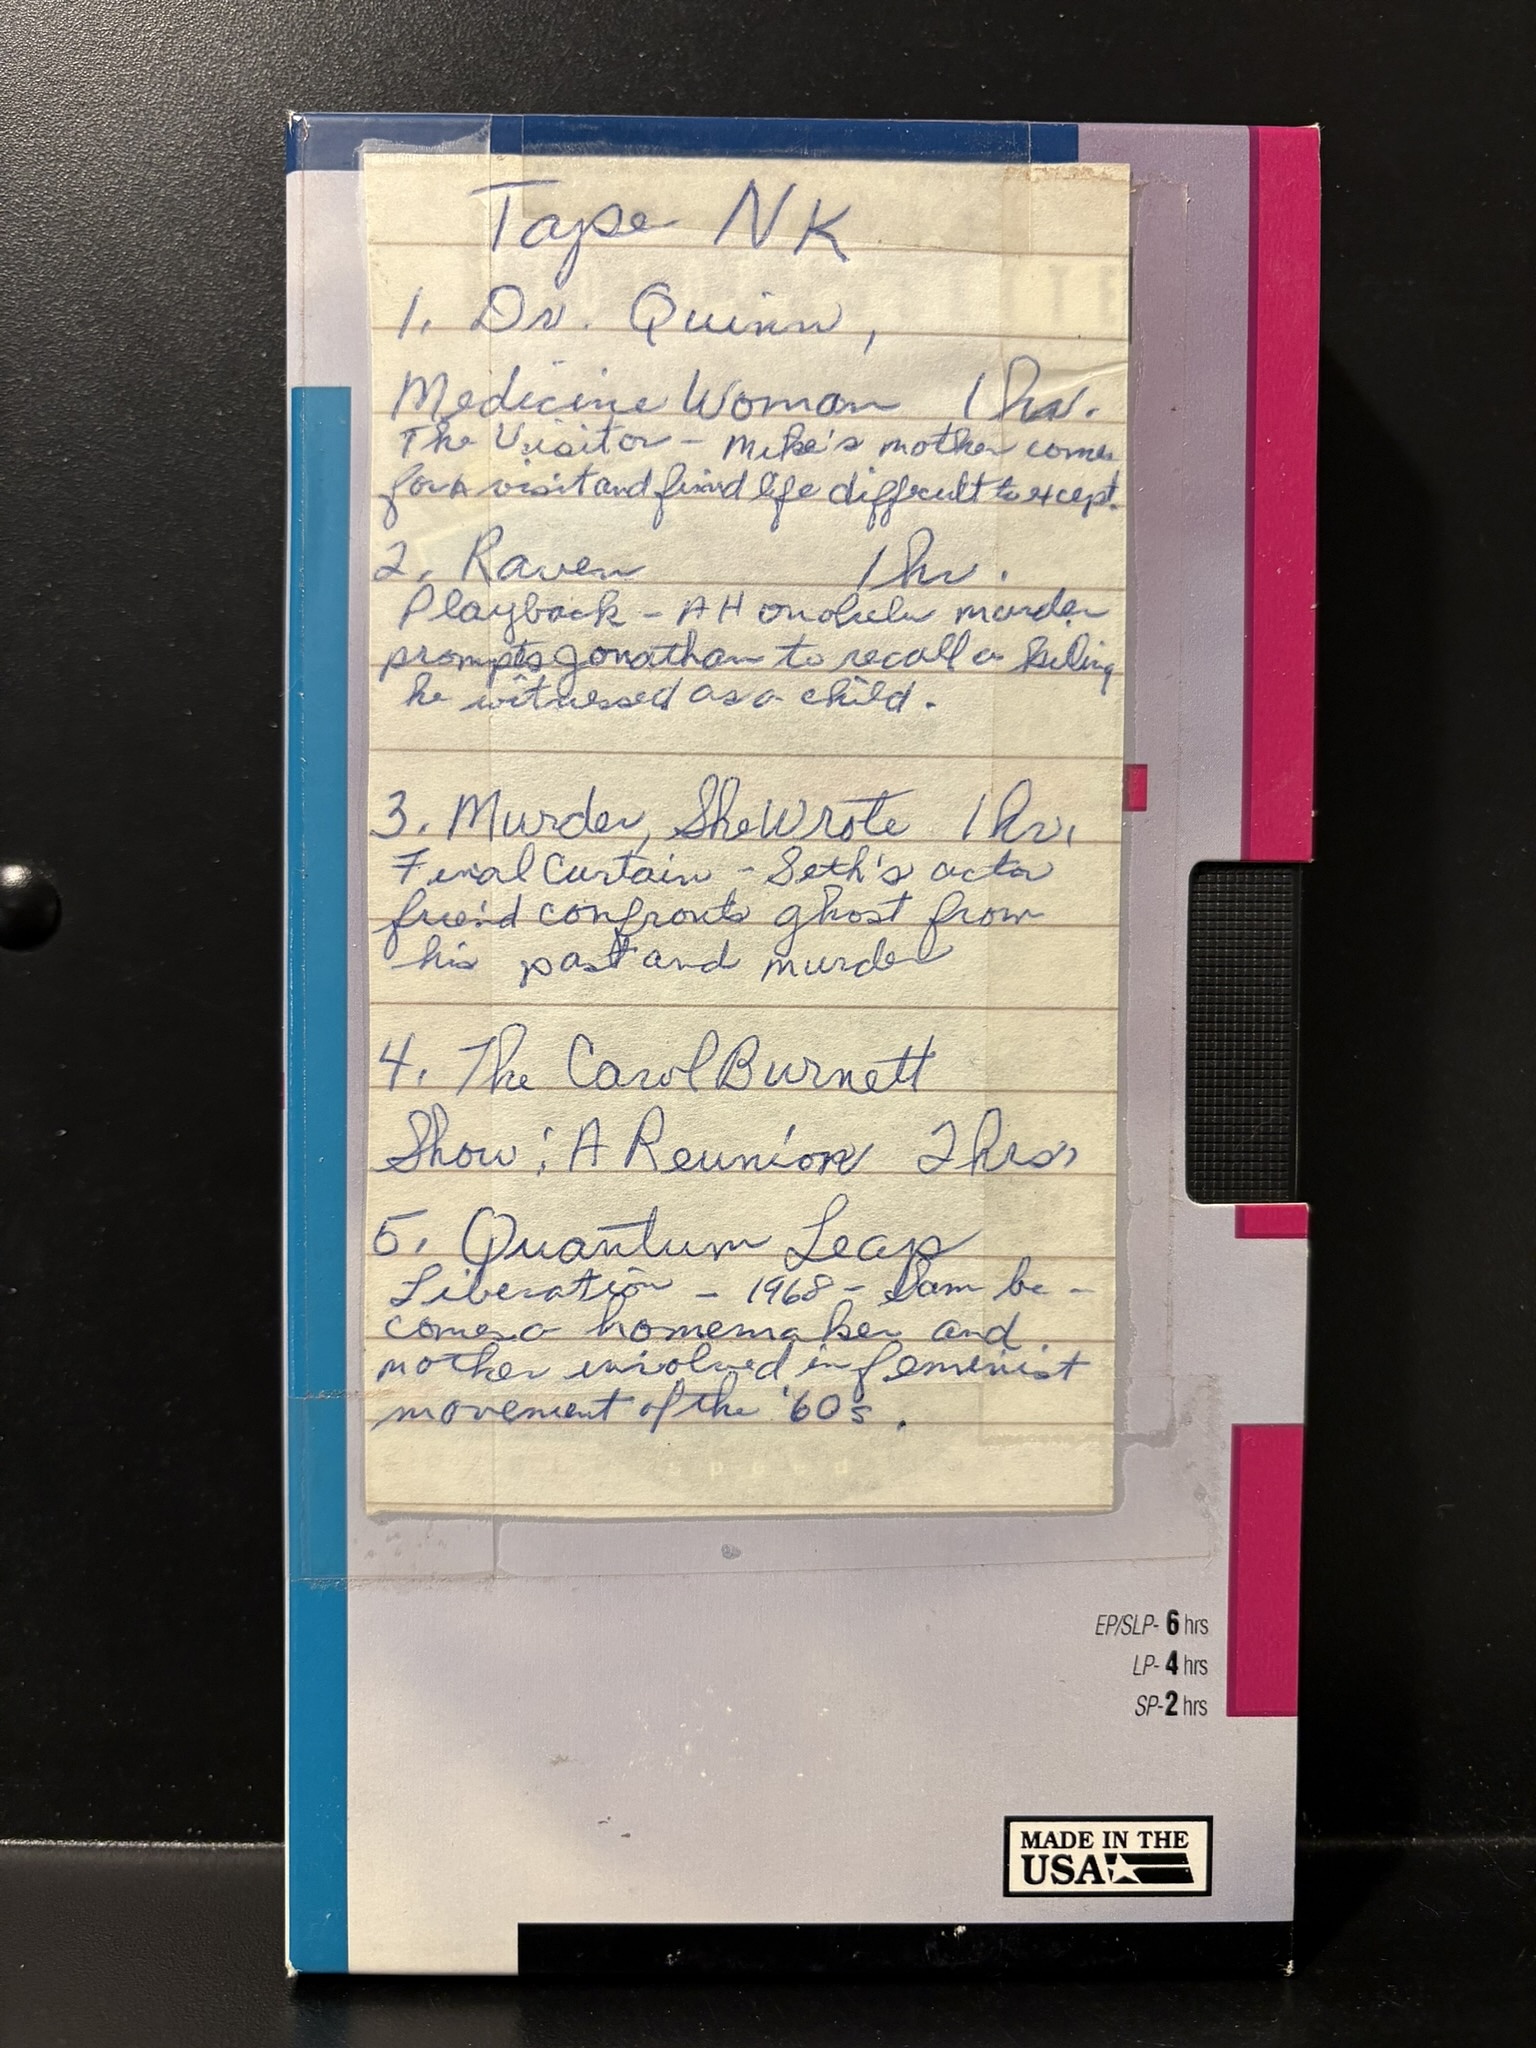 Tape NK
1. Dr. Quinn,
Medicine Woman 1 hr.
The Visitor - Mike's mother comes
for a visit and find life difficult to except.
2. Raven 1 hr.
Playback - A Honolulu murder
prompts Jonathan to recall a killing
he witnessed as a child.
3. Murder, She Wrote 1 hr.
Final Curtain - Seth's actor
friend confronts ghost from
his past and murder
4. The Carol Burnett
Show: A Reunion 2 hrs.
5. Quantum Leap
Liberation - 1968 - Sam be-
comes a homemaker and
mother involved in feminist
movement of the '60s.
speed
EP/SLP- 6 hrs
LP- 4 hrs
SP- 2 hrs
MADE IN THE
USA